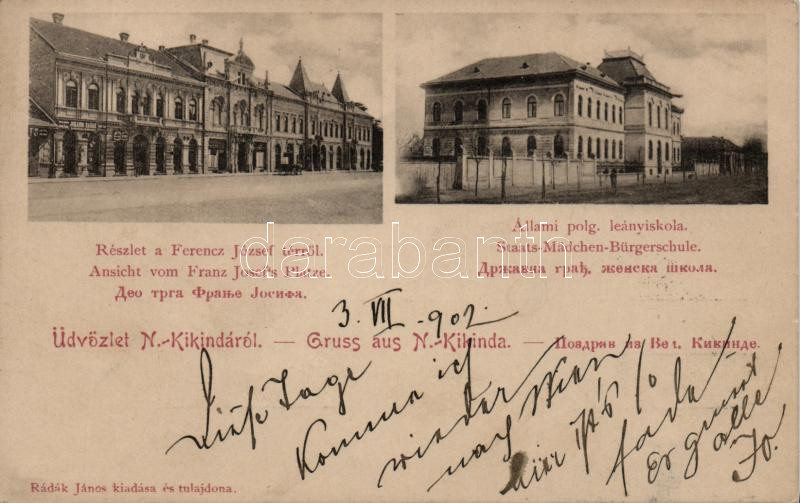 Részlet a Ferencz József térről.
Ansicht vom Franz Josefs Platze.
Део трга Фрање Јосифа.
Állami polg. leányiskola.
Staats-Mädchen-Bürgerschule.
Државна грађ. женска школа.
darabanth
3. VII. 902.
Üdvözlet N.-Kikindáról. — Gruss aus N.-Kikinda. — Поздрав из Вел. Кикинде.
Diese Tage
Komme ich
wieder
nach Wien
mir ist's so
fade
Es grüsst
alle
Jo.
Rádák János kiadása és tulajdona.